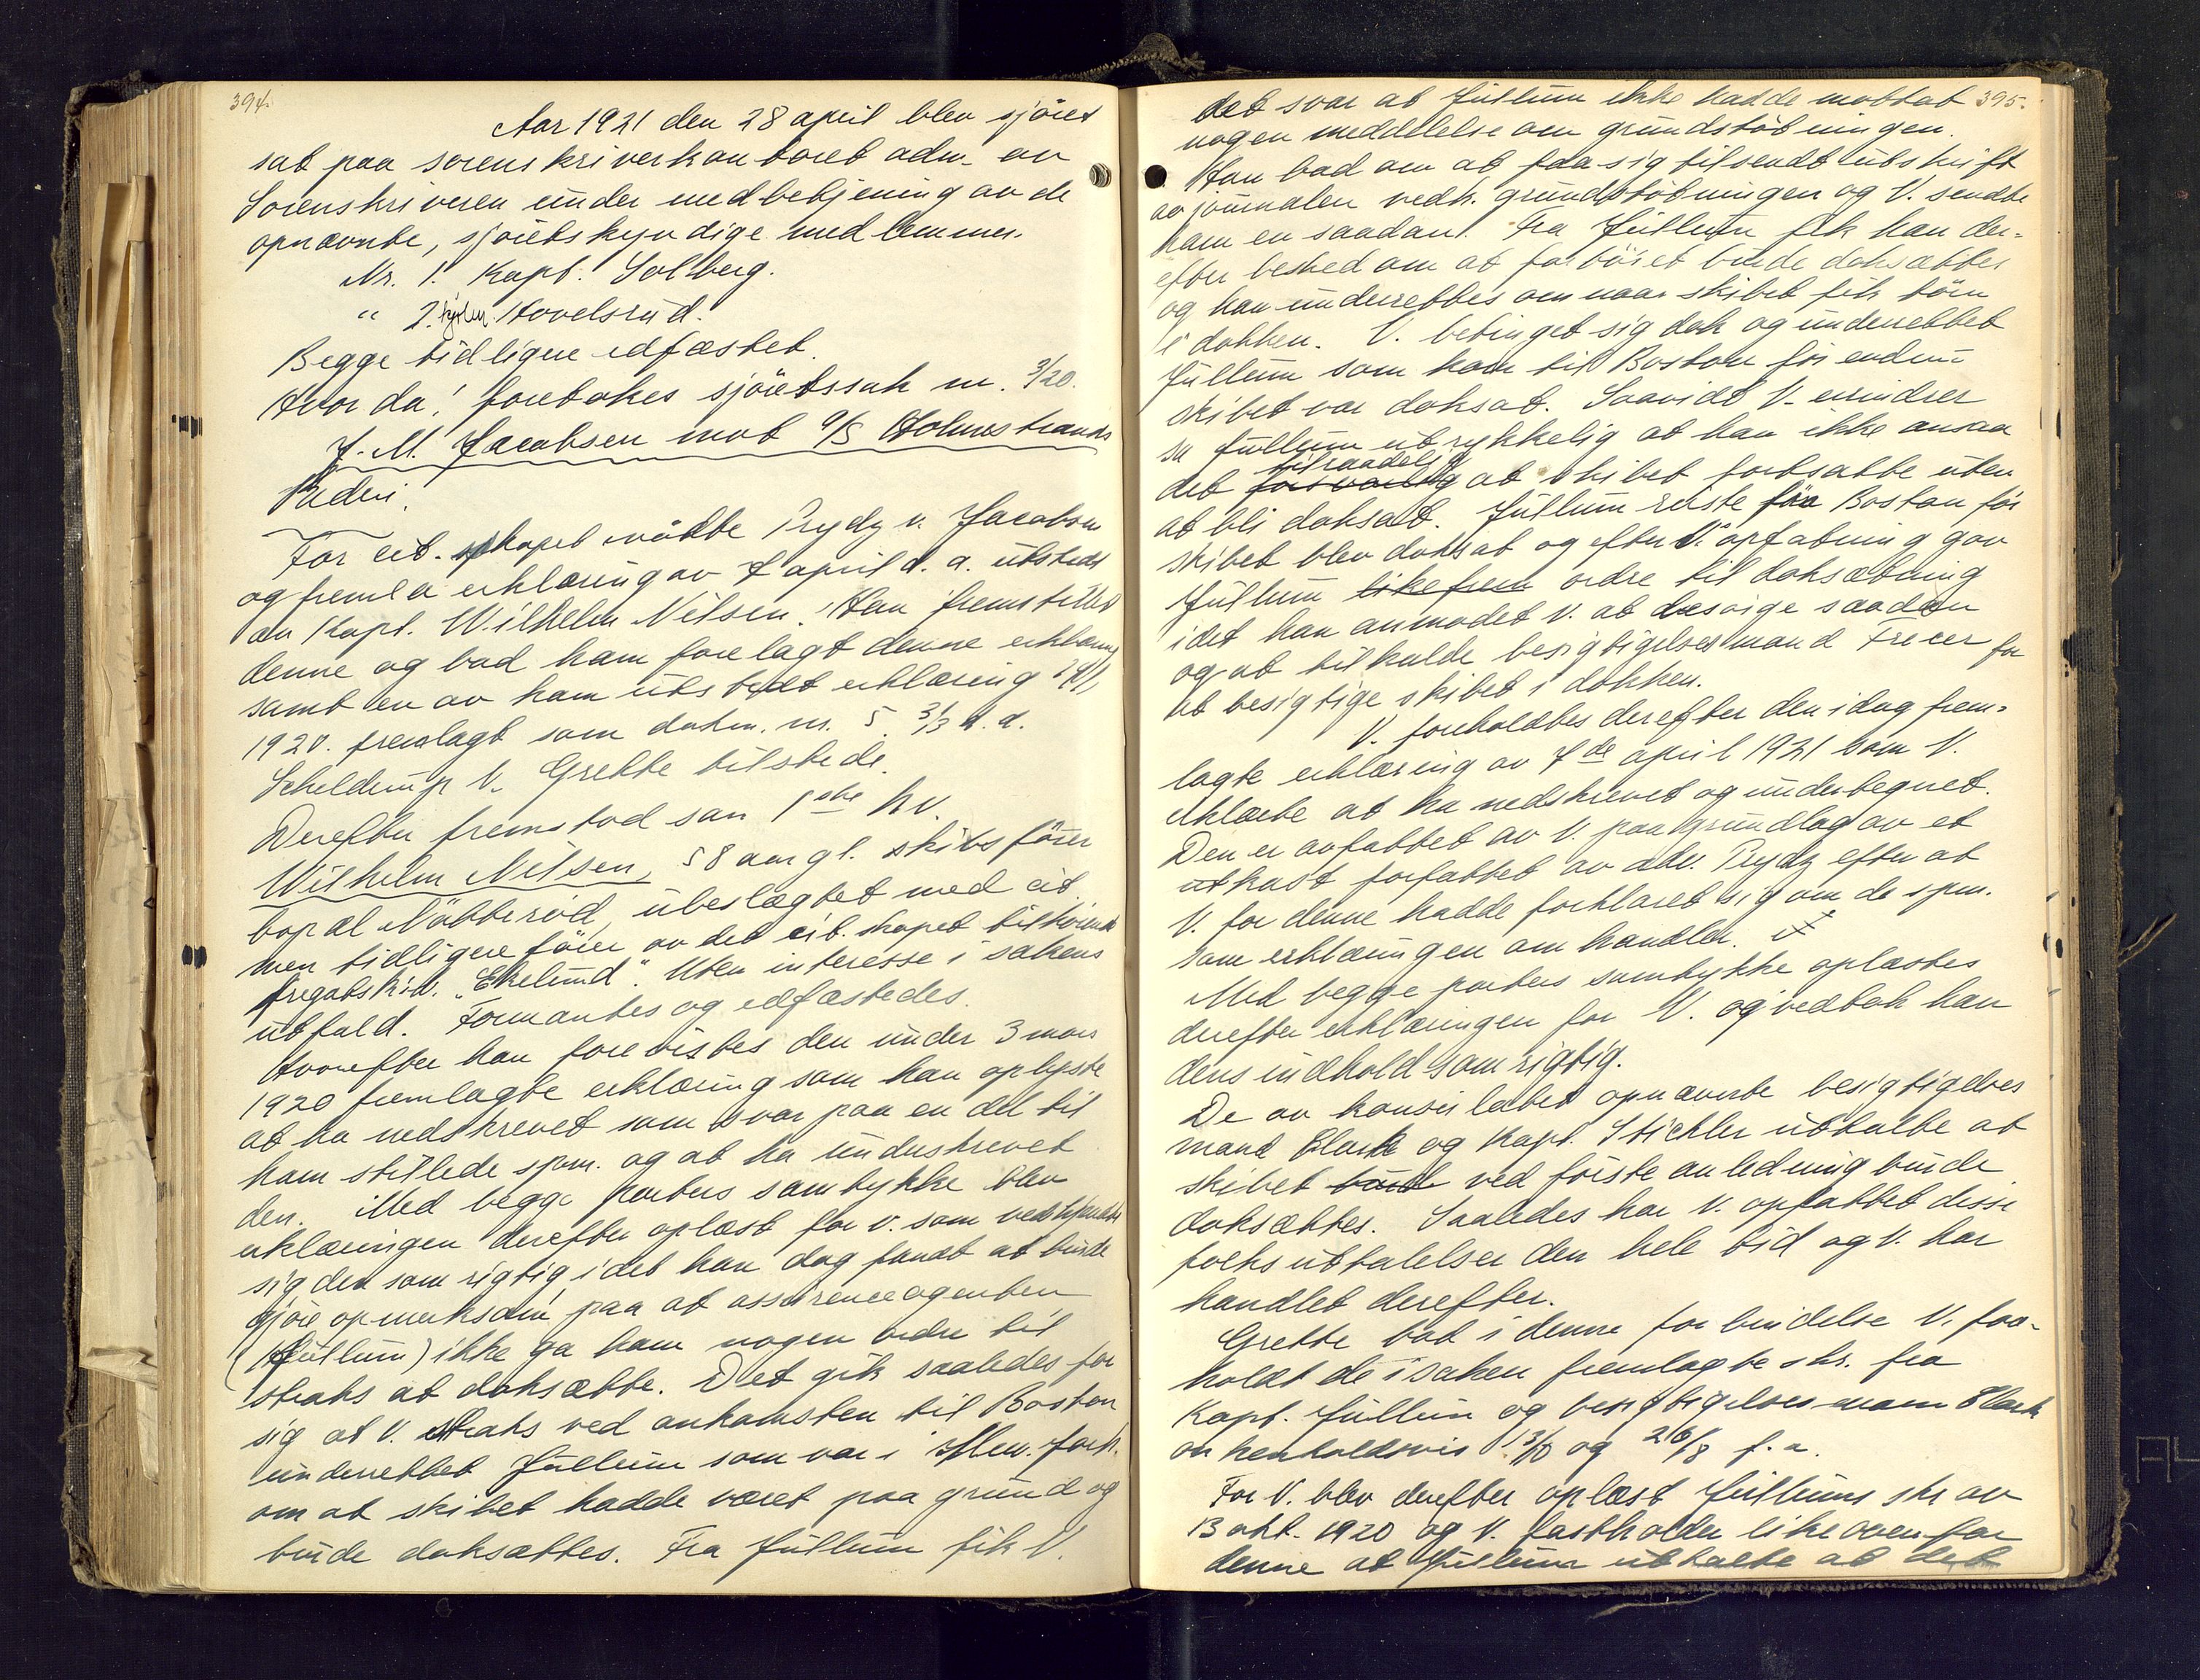 394.
Aar 1921 den 28 april blev sjöret
sat paa sorenskriverkontoret adm. av
Sorenskriveren under medbetjening av de
opnævnte, sjöretskyndige medlemmer.
Nr. 1. Kapt. Solberg.
" 2. Hovelsrud.
Begge tidligere edfæstet.
Hvor da! foretokes sjöretssak nr. 3/20.
J. M. Jacobsen mot a/s Holmestrands
Rederi.
For cit. skapet mötte Prydz v. Jacobsen
og fremla erklæring av 7 april d. a. utstedt
av Kapt. Wilhelm Nilsen. Han fremstillet
denne og bad ham forelagt denne erklæring
samt en av ham utstedt erklæring
1920. fremlagt som dokm. nr. 5. 3/3 d. a.
Scheldrup v. Grette tilstede.
Derefter fremstod som 1ste kv.
Wilhelm Nilsen, 58 aar gl. skibsförer
bopæl Nötteröd, ubeslægtet med cit.
men tidligere förer av det cit. skapet tilhörende
fregatskib. "Ekelund". Uten interesse i sakens
utfald. Formantes og edfæstedes.
Hvorefter han forevistes den under 3 mars
1920 fremlagte erklæring som han oplyste
at ha nedskrevet som svar paa en del til
ham stillede spm. og at ha underskrevet
den. Med begge parters samtykke blev
erklæringen derefter oplæst for v. som vedkjendte
sig den som rigtig idet han dog fandt at burde
gjöre opmerksom paa at assuranceagenten
(Jullum) ikke ga ham nogen ordre til
straks at doksætte. Det gik saaledes for
sig at V. straks ved ankomsten til Boston
underrettet Jullum som var i New. York.
om at skibet hadde været paa grund og
burde doksættes. Fra Jullum fik V.
395.
det svar at Jullum ikke hadde mottat
nogen meddelelse om grundstötningen.
Han bad om at faa sig tilsendt utskrift
av journalen vedk. grundstötningen og V. sendte
ham en saadan. Fra Jullum fik han der-
efter besked om at fartöiet burde doksættes
og han underrettes om naar skibet fik törn
i dokken. V. betinget sig dok og underrettet
Jullum som kom til Boston för endnu
skibet var doksat. Saavidt V. erindrer
sa Jullum utrykkelig at han ikke ansaa
tilraadelig
det forsvarlig at skibet fortsatte uten
at bli doksat. Jullum reiste fra Boston för
skibet blev doksat og efter V.s opfatning gav
Jullum likefrem ordre til doksætning
idet han anmodet V. at besörge saadan
og at tilkalde besigtigelsesmand Frecer for
at besigtige skibet i dokken.
V. foreholdtes derefter den i dag frem-
lagte erklæring av 7de april 1921 som V.
erklærte at ha nedskrevet og undertegnet.
Den er avfattet av V. paa grundlag av et
utkast forfattet av adv. Prydz efter at
V. for denne hadde forklaret sig om de spm.
som erklæringen om handler.
Med begge parters samtykke oplæstes
derefter erklæringen for V. og vedtok han
dens indhold som rigtig.
De av konsulatet opnævnte besigtigelses
mænd Clark og Kapt. Stickler uttalte at
skibet burde ved förste anledning burde
doksættes. Saaledes har V. opfattet disse
folks uttalelser den hele tid og V. har
handlet derefter.
Grette bad i denne forbindelse V. fore-
holdt de i saken fremlagte skr. fra
Kapt. Jullum og besigtigelsesmann Clark
av henholdsvis 13/10 og 26/8 f. a.
For V. blev derefter oplæst Jullums skr av
13 okt. 1920 og V. fastholder like overfor
denne at Jullum uttalte at det